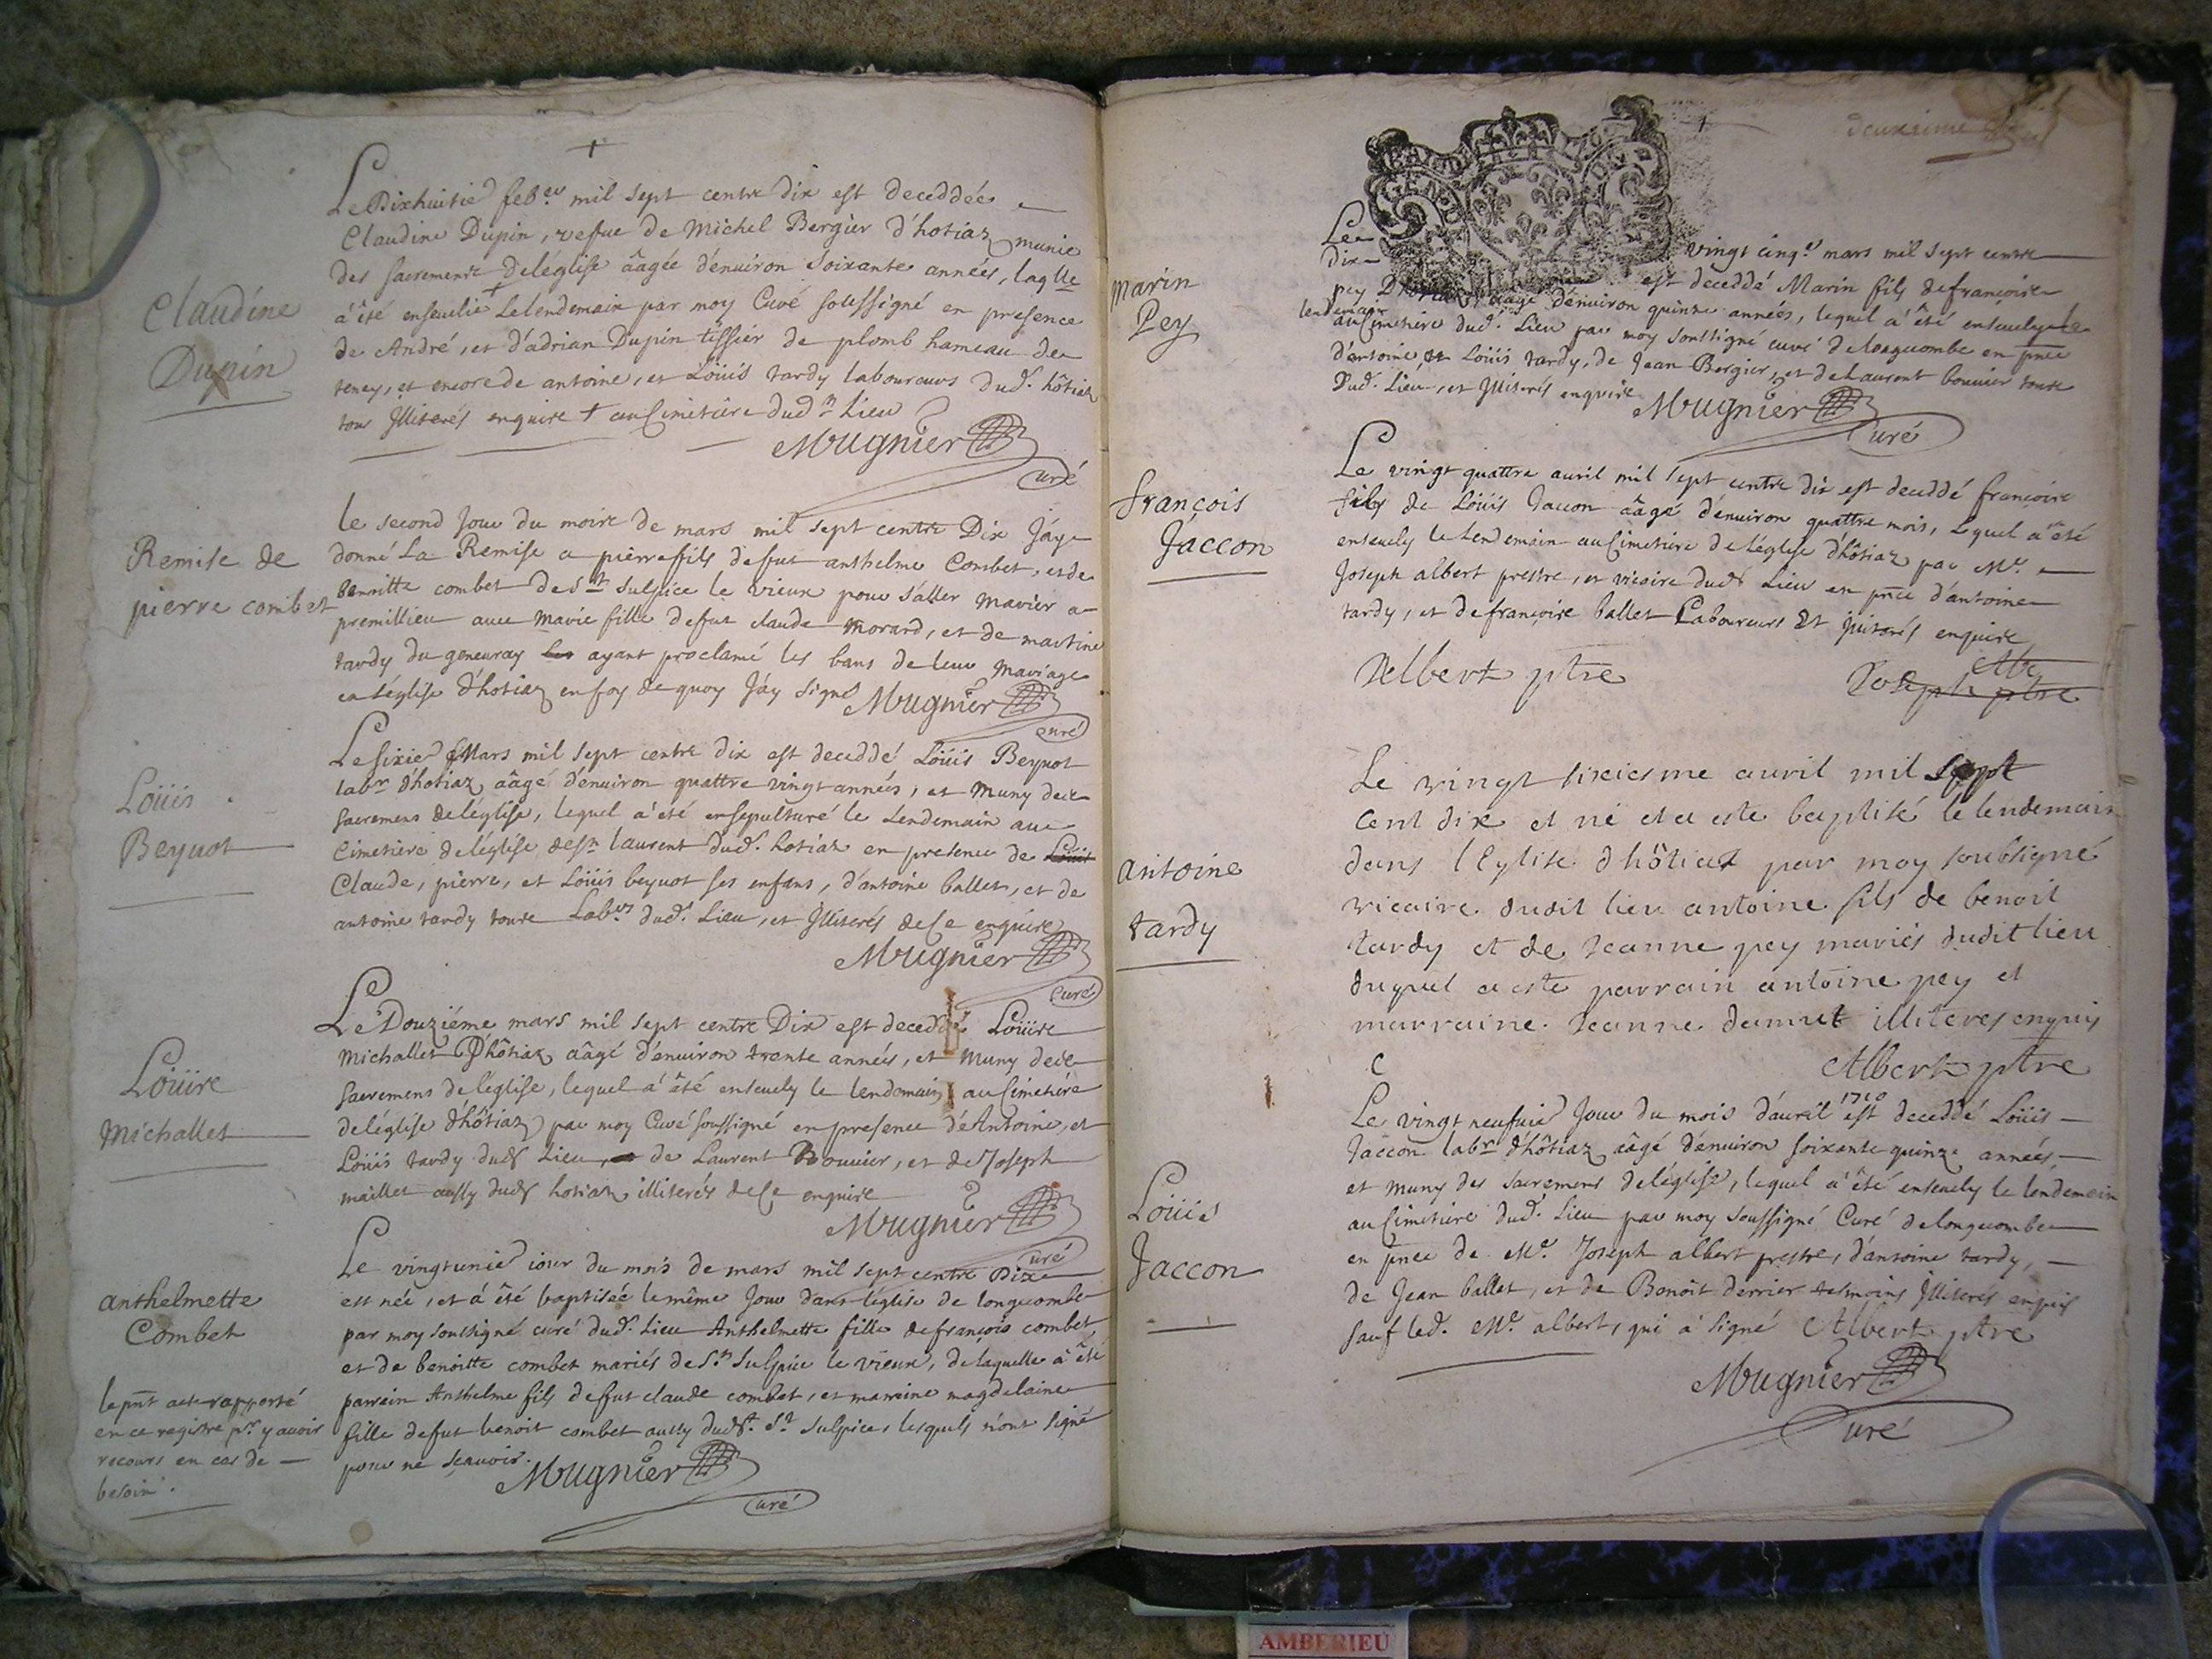 Claudine
Dupin
Le Dixhuitie feber mil sept centz dix est deceddée
Claudine Dupin, vefue de Michel Bergier d'hotiaz munie
des sacrementz de léglise âagée d'enuiron soixante années, laqlle
a'êté enseuelie + Le lendemain par moy Curé soussigné en presence
de André, et d'adrian Dupin tissier de plomb hameau de
teney, et encore de antoine, et Loüis tardy laboureurs dud. hôtiaz
tous Jlliterés enquire + au Cimetiere dud. Lieu
Mugnier
Curé
Remise de
pierre combet
le second Jour du moire de mars mil sept centz Dix Jáy
donné La Remise a pierre fils de fut anthelme Combet, et de
benoitte combet de St Sulpice le vieux pour s'aller marier a
premillieu auec marie fille de fut claude morard, et de martine
tardy du geneuray ayant proclamé les bans de leur mariage
en l'église d'hotiaz en foy de quoy Jáy signé Mugnier
curé
Loüis
Beynot
Le sixie Mars mil sept centz dix est deceddé Loüis Beynot
labr d'hotiaz âagé d'enuiron quattre vingt années, et muny des
sacremens de léglise, lequel a'été ensepulturé le Lendemain au
Cimetiere de léglise de st laurent dud. hotiaz en presence de Louis
Claude, pierre, et Loüis beynot ses enfans, d'antoine ballet, et de
antoine tardy toure Labrs dud. Lieu, et Jlliterés de Ce enquire
Mugnier
Curé
Loüire
Michallet
Le Douziéme mars mil sept centz Dix est deceddé Loüire
Michallet D'hôtiaz âagé d'enuiron trente années, et muny des
sacremens de léglise, lequel a'êté enseuely le lendemain au Cimetiére
de léglise d'hôtiaz par moy Curé soussigné en presence d'Antoine, et
Loüis tardy dud. Lieu, de Laurent Bouuier, et de Joseph
maillet aussy dud. hotiaz illiterés de Ce enquire
Mugnier
Curé
anthelmette
Combet
le pnt acte rapporté
en ce registre pr. y auoir
recours en cas de
besoin.
Le vingtunie iour du mois de mars mil sept centz Dix
est née, et á êté baptisée le même Jour dans léglise de longecombe
par moy soussigné curé dud. Lieu Anthelmette fille de françois combet
et de benoitte combet mariés de St Sulpice le vieux, de laquelle à été
parrain Anthelme fils de fut claude combet, et marraine magdelaine
fille de fut benoit combet aussy dud. St Sulpice, lesquels n'ont signé
pour ne sçauoir. Mugnier
Curé
deuxieme
GEN DE
Marin
Pey
Le vingt cinqe mars mil sept centz
dix est deceddé Marin fils de françoire
pey D'hotiaz, âagé d'enuiron quinze années, lequel a'êté enseuely le
lendemain au Cimetiére dud. Lieu par moy soussigné curé de longecombe en pnce
d'antoine, et Loüis tardy, de Jean Bergier, et de Laurent bouuier toure
dud. Lieu, et Jlliterés enquire Mugnier
Curé
françois
Jaccon
Le vingt quattre auril mil sept centz dix est deceddé françoire
fils de Loüis Jaccon âagé d'enuiron quattre mois, Lequel a'êté
enseuely le Lendemain au Cimetiére de léglise d'hôtiaz par Mr.
Joseph albert prestre, et vicaire dud. Lieu en pnce d'antoine
tardy, et de françoire ballet Laboureurs Et Jlliterés enquire
Albert ptre
Joseph ptre
antoine
tardy
Le vingt sixiesme auril mil sept
cent dix et né et a este baptisé le lendemain
dans l'Eglise d'hôtiaz par moy soubsigné
vicaire dudit lieu antoine fils de benoit
tardy et de Jeanne pey mariés dudit lieu
duquel a este parrain antoine pey et
marraine Jeanne dumet illiteres enquis
Albert ptre
Loüis
Jaccon
Le vingt neufuie Jour du mois d'auril 1710 est deceddé Loüis
Jaccon labr d'hôtiaz âagé d'enuiron soixante quinze années,
et muny des sacremens de léglise, lequel a'êté enseuely le lendemain
au Cimetiere dud. Lieu par moy soussigné Curé de longecombe
en pnce de Mr. Joseph albert prestre, d'antoine tardy,
de Jean ballet, et de Benoit derrier tesmoins Jlliterés enquis
sauf led. Mr. albert, qui a' signé Albert ptre
Mugnier
Curé
AMBERIEU